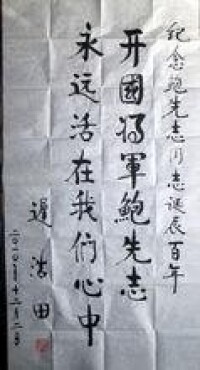 纪念鲍先志同志诞辰百年
开國将軍鮑先志
永远活在我们心中
遲浩田
二〇一〇年十二月二日